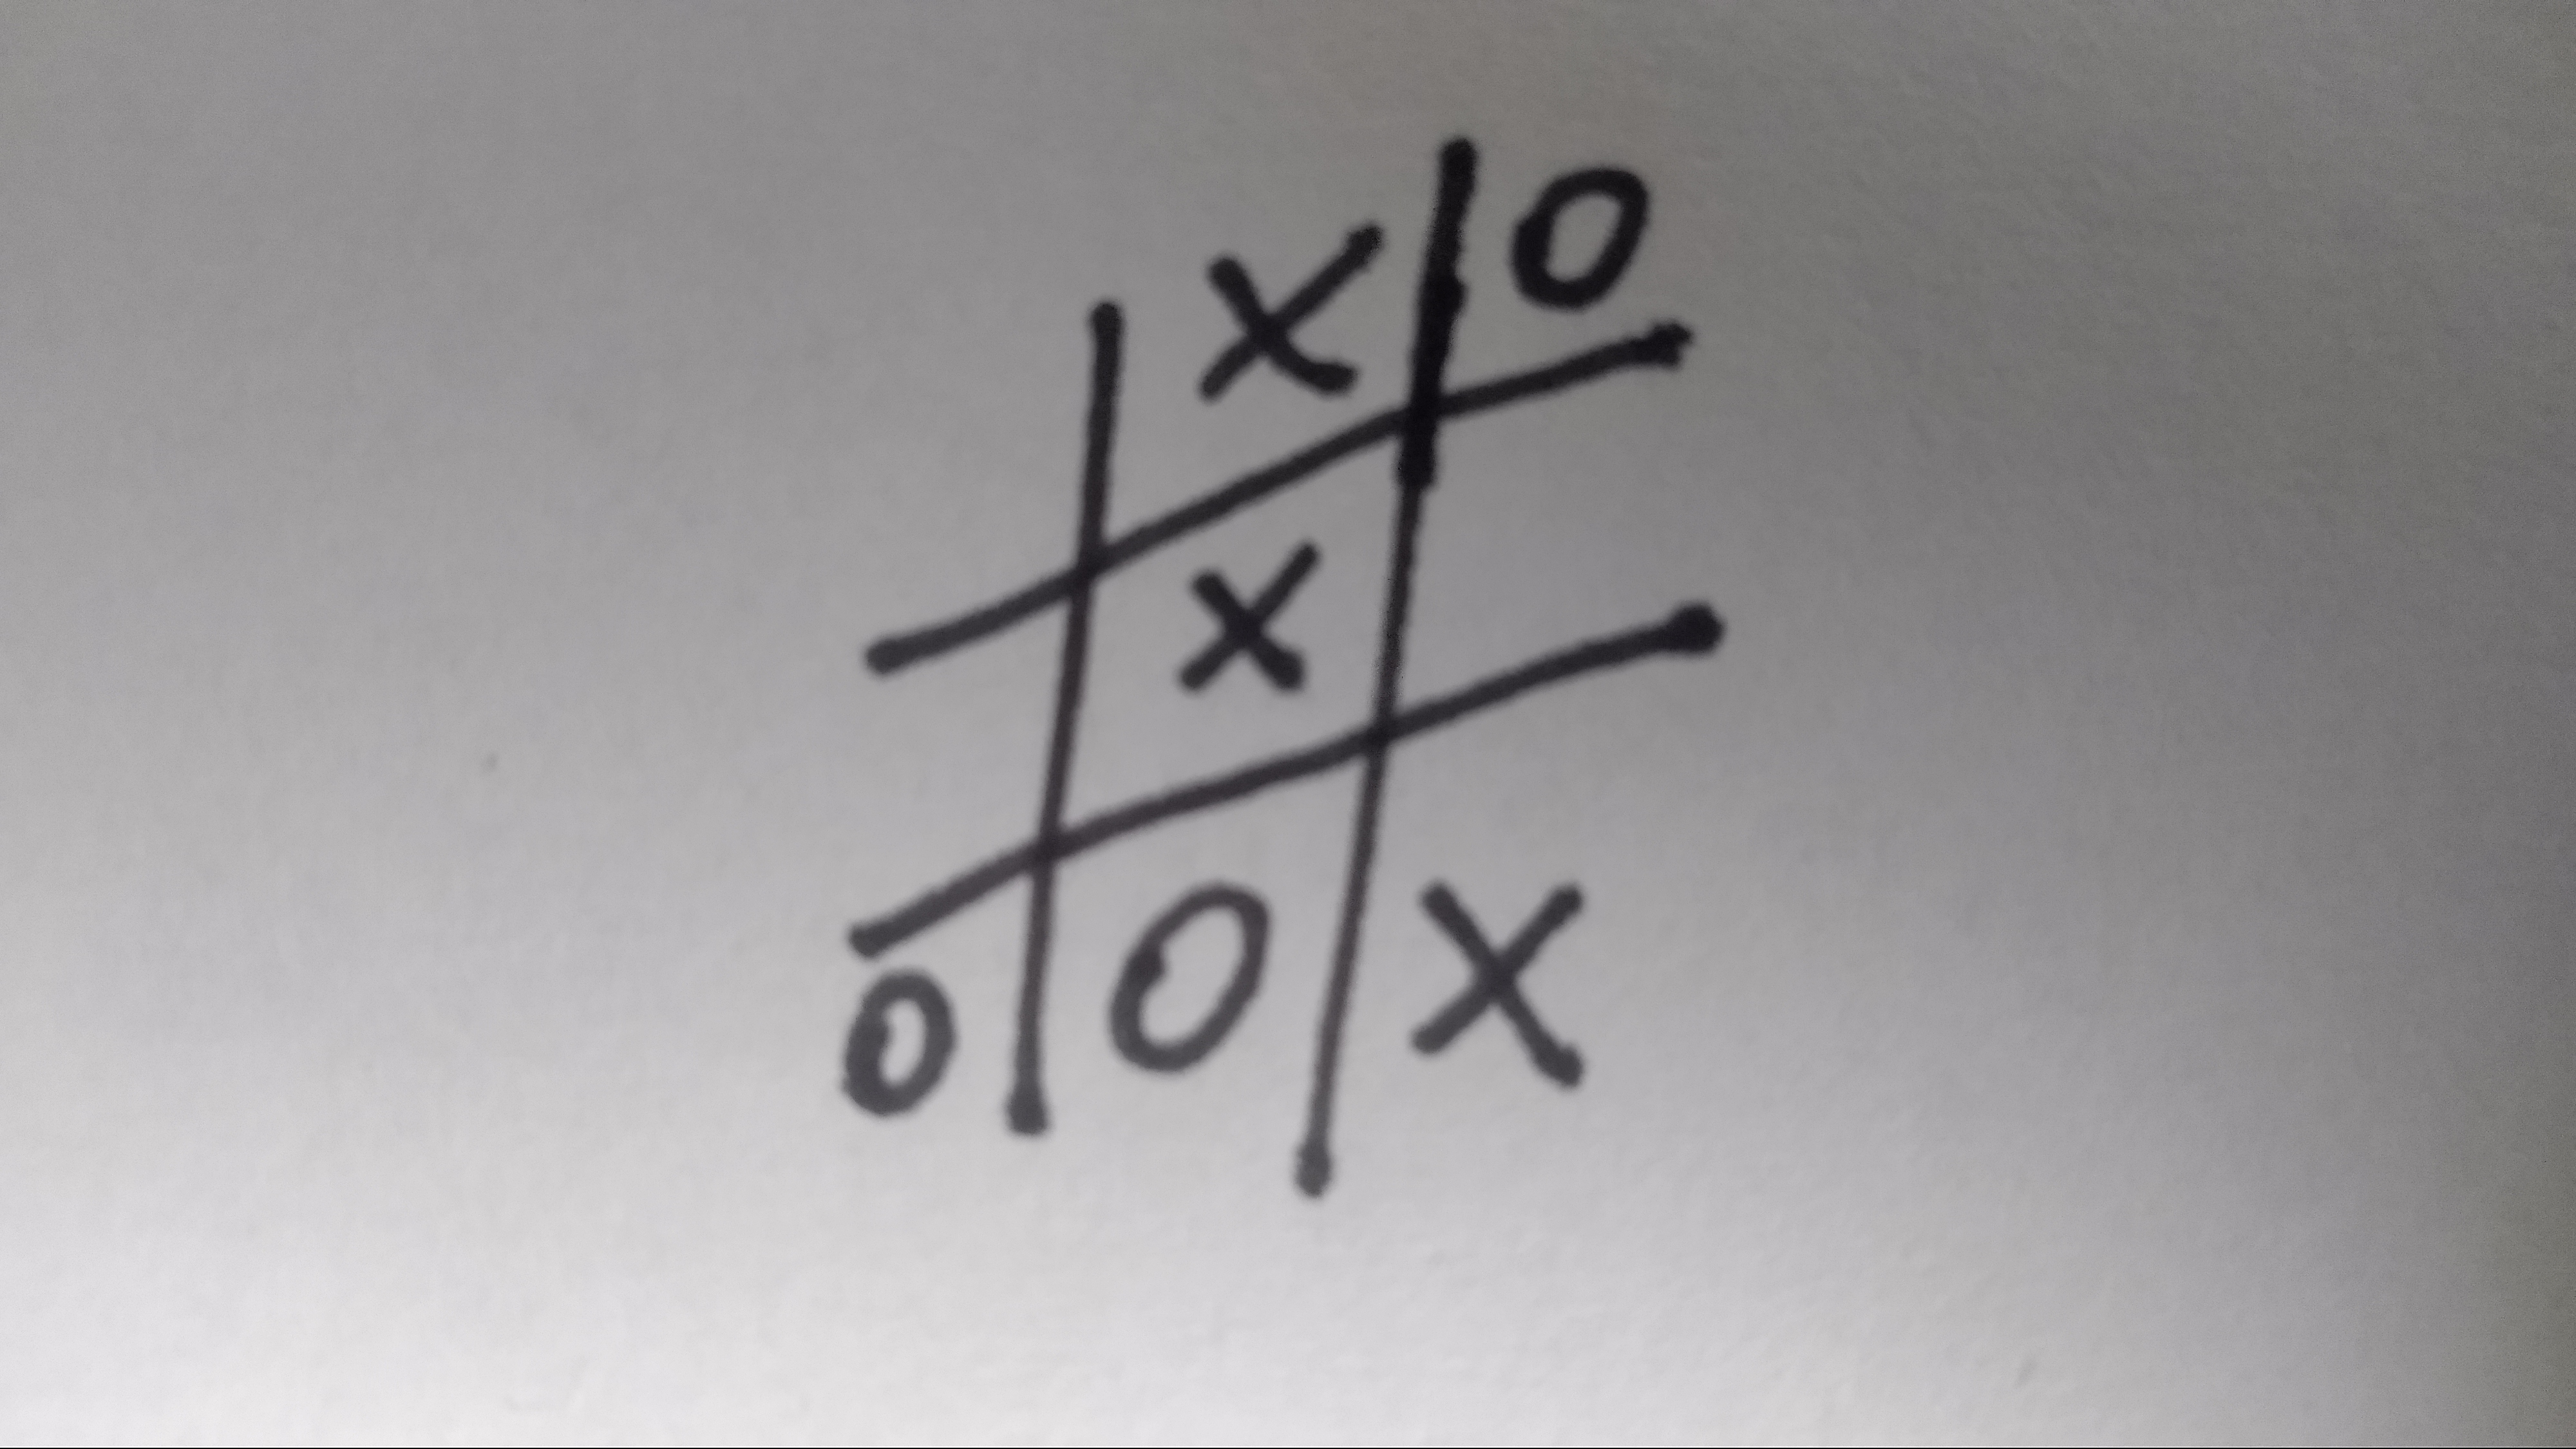 X O
X
O O X